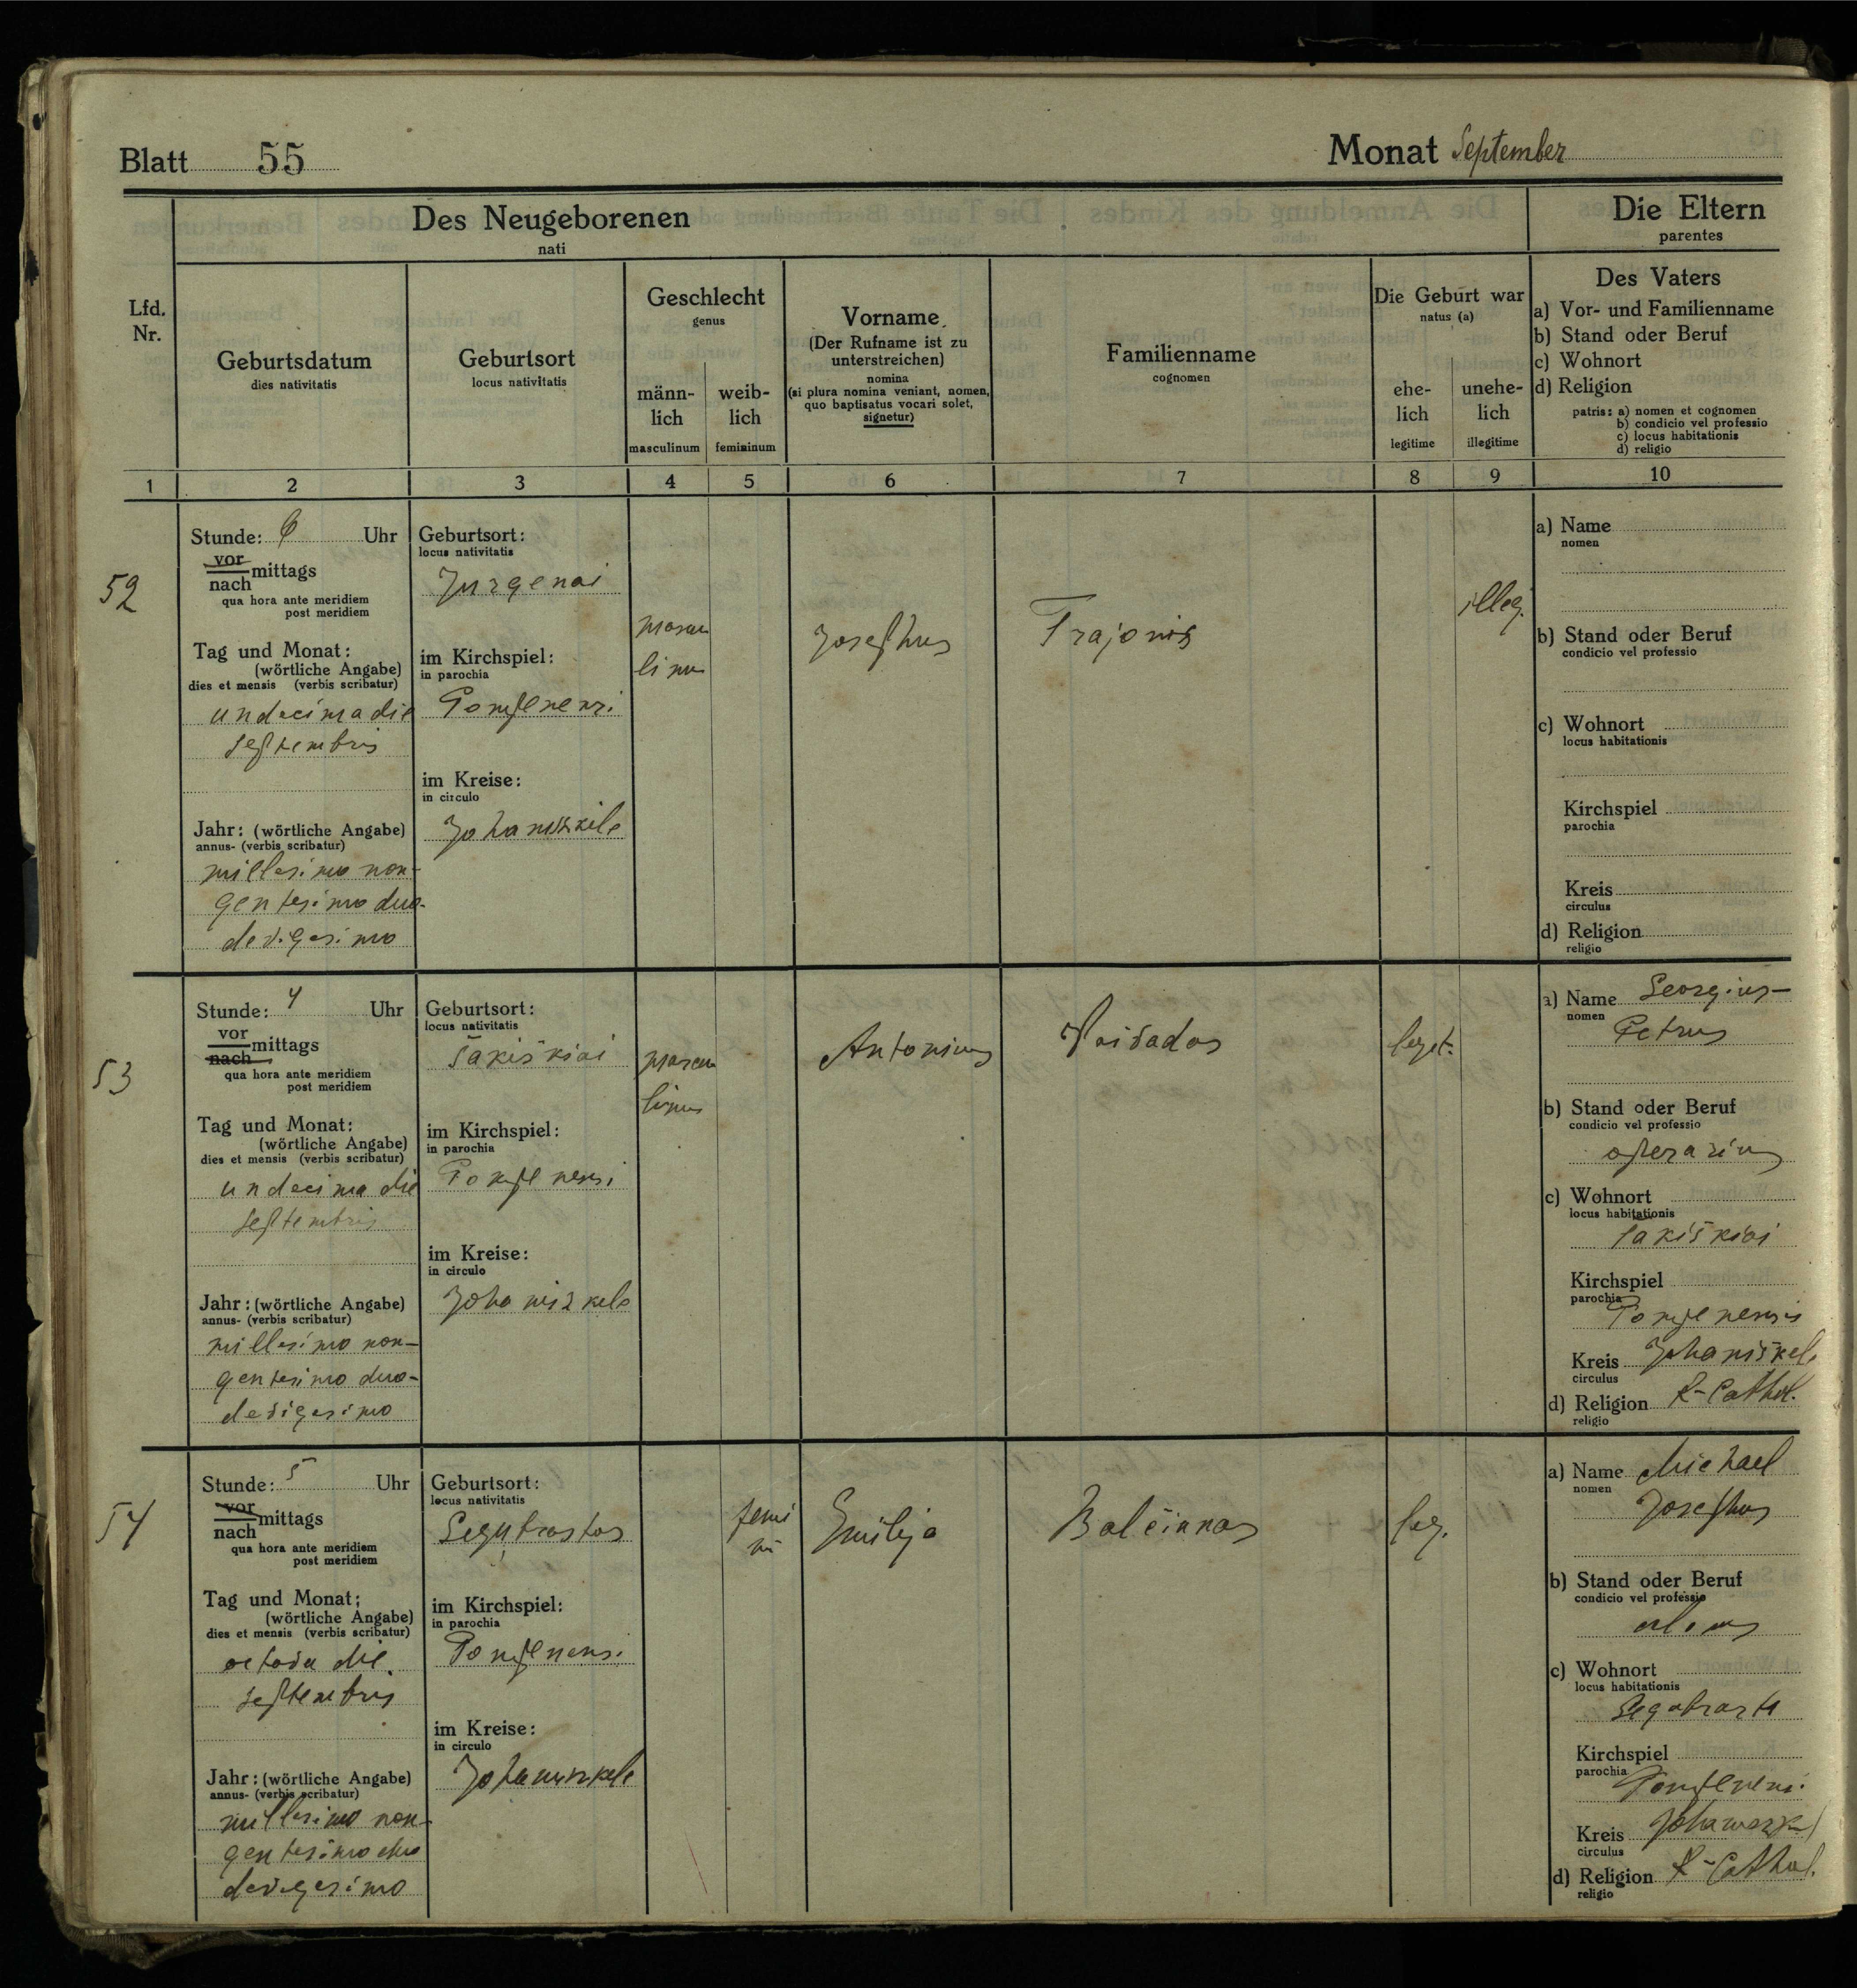 Blatt 55
Monat September
Des Neugeborenen
nati
Die Eltern
parentes
Lfd.
Nr.
Geburtsdatum
dies nativitatis
Geburtsort
locus nativitatis
Geschlecht
genus
männ-
lich
masculinum
weib-
lich
femininum
Vorname
(Der Rufname ist zu
unterstreichen)
nomina
(si plura nomina veniant, nomen,
quo baptisatus vocari solet,
signetur)
Familienname
cognomen
Die Geburt war
natus (a)
ehe-
lich
legitime
unehe-
lich
illegitime
Des Vaters
a) Vor- und Familienname
b) Stand oder Beruf
c) Wohnort
d) Religion
patris: a) nomen et cognomen
b) condicio vel professio
c) locus habitationis
d) religio
1 2 3 4 5 6 7 8 9 10
52
Stunde: 6 Uhr
vor
mittags
nach
qua hora ante meridiem
post meridiem
Tag und Monat:
(wörtliche Angabe)
dies et mensis (verbis scribatur)
undecima die
septembris
Jahr: (wörtliche Angabe)
annus- (verbis scribatur)
millesimo non-
gentesimo duo-
devigesimo
Geburtsort:
locus nativitatis
Jurgenai
im Kirchspiel:
in parochia
im Kreise:
in circulo
Johaniszkele
mascu
linus
Josephus
Trajonis
illeg.
a) Name
nomen
b) Stand oder Beruf
condicio vel professio
c) Wohnort
locus habitationis
Kirchspiel
parochia
Kreis
circulus
d) Religion
religio
53
Stunde: 4 Uhr
vor
mittags
nach
qua hora ante meridiem
post meridiem
Tag und Monat:
(wörtliche Angabe)
dies et mensis (verbis scribatur)
undecima die
septembris
Jahr: (wörtliche Angabe)
annus- (verbis scribatur)
millesimo non-
gentesimo duo-
devigesimo
Geburtsort:
locus nativitatis
Šakiškiai
im Kirchspiel:
in parochia
im Kreise:
in circulo
Johaniszkele
mascu
linus
Antonius
Vaidados
legit.
a) Name Georgius-
nomen
Petrus
b) Stand oder Beruf
condicio vel professio
operarius
c) Wohnort
locus habitationis
Šakiškiai
Kirchspiel
parochia
Kreis Johaniškele
circulus
d) Religion R-Cathol.
religio
54
Stunde: 5 Uhr
vor
mittags
nach
qua hora ante meridiem
post meridiem
Tag und Monat:
(wörtliche Angabe)
dies et mensis (verbis scribatur)
octava die
septembris
Jahr: (wörtliche Angabe)
annus- (verbis scribatur)
millesimo non-
gentesimo duo
devigesimo
Geburtsort:
locus nativitatis
im Kirchspiel:
in parochia
im Kreise:
in circulo
Johaniszkele
femi
ni
Emilija
Balčiunas
leg.
a) Name Michael
nomen
Josephus
b) Stand oder Beruf
condicio vel professio
c) Wohnort
locus habitationis
Kirchspiel
parochia
Kreis
circulus
d) Religion R-Cathol.
religio